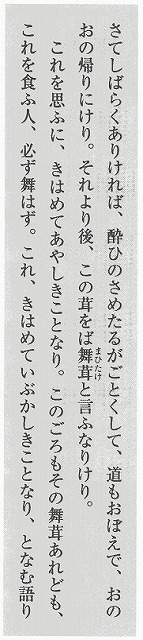 さてしばらくありければ、酔ひのさめたるがごとくして、道もおぼえで、おの
おの帰りにけり。それより後、この茸をば舞茸と言ふなりけり。
まひたけ
これを思ふに、きはめてあやしきことなり。このごろもその舞茸あれども、
これを食ふ人、必ず舞はず。これ、きはめていぶかしきことなり、となむ語り